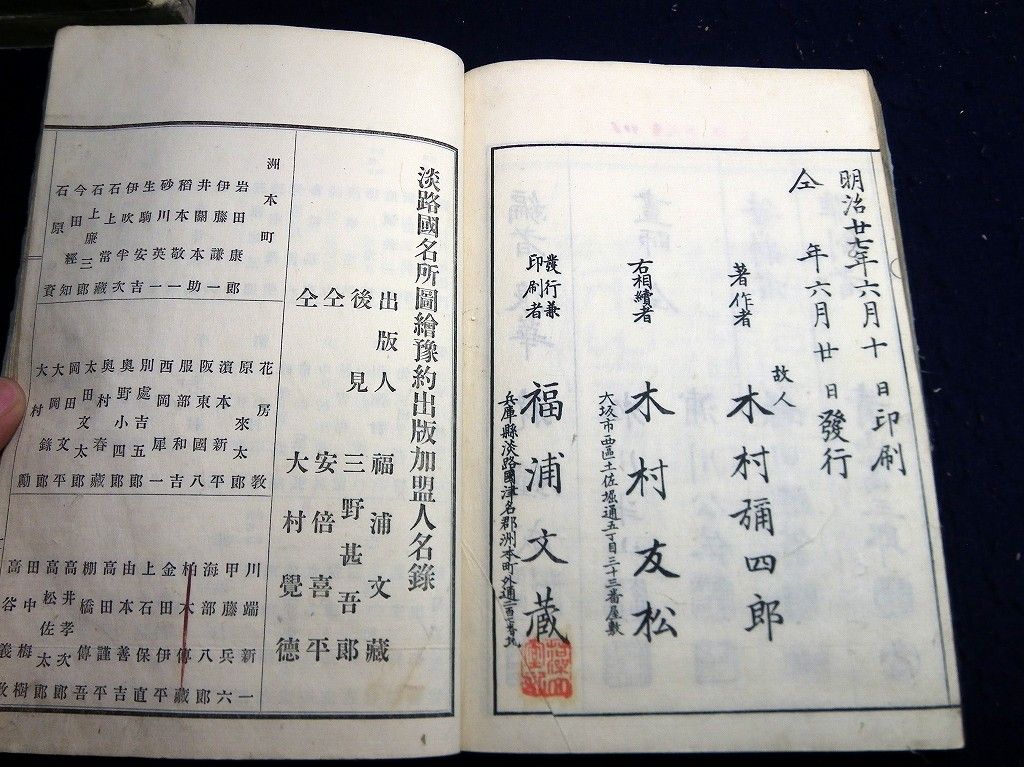 明治廿七年六月十日印刷
仝年六月廿日發行
著作者
故人
木村彌四郎
右相續者
木村友松
大坂市西區土佐堀通五丁目三十三番屋敷
發行兼
印刷者
福浦文藏
兵庫縣淡路國津名郡洲本町外通
淡路國名所圖繪豫約出版加盟人名錄
出版人 福浦文藏
後見 三野甚吾郎
仝 安倍喜平
仝 大村覺德
洲本町
岩田康郎
伊藤謙一
井關本助
稻本敬一
砂川英一
生駒安吉
伊吹半次
石上常藏
石上廉三郎
今田
石原
花房教
原來太郎
濱本新平
阪東國八
服部和吉
西岡犀一
別處吉五郎
奧野小四郎
奧村春藏
太田文太郎
岡田文平
大岡
大村
川端新一
甲藤兵六
海部八郎
柏木傳藏
金田伊平
上石保直
由本善吉
高田謹平
棚橋傳吾
高井孝次郎
高松佐太郎
田中梅樹
高谷義